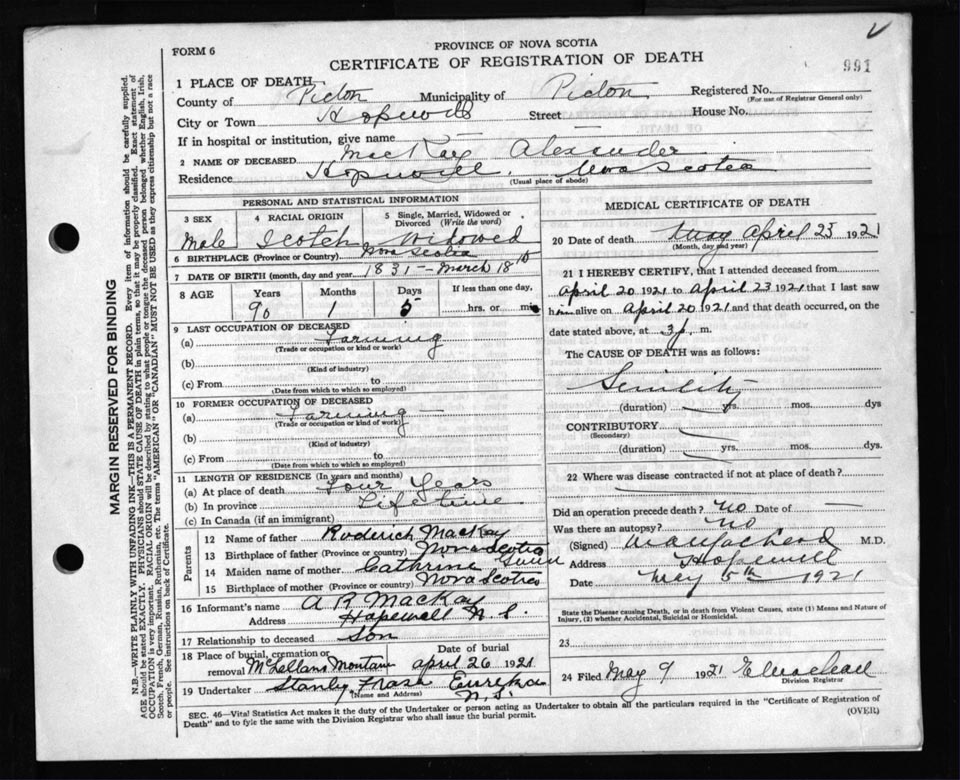 PROVINCE OF NOVA SCOTIA
FORM 6
CERTIFICATE OF REGISTRATION OF DEATH
991
1 PLACE OF DEATH
County of Pictou Municipality of Pictou Registered No.
(For use of Registrar General only)
City or Town Hopewell Street House No.
If in hospital or institution, give name
2 NAME OF DECEASED MacKay Alexander
Residence Hopewell, Nova Scotia
(Usual place of abode)
PERSONAL AND STATISTICAL INFORMATION
3 SEX 4 RACIAL ORIGIN 5 Single, Married, Widowed or Divorced (Write the word)
Male Scotch Widowed
6 BIRTHPLACE (Province or Country) Nova Scotia
7 DATE OF BIRTH (month, day and year) 1831 - March 18th
8 AGE Years Months Days If less than one day,
90 1 5 hrs. or min
9 LAST OCCUPATION OF DECEASED
(a) Farming
(Trade or occupation or kind or work)
(b)
(Kind of industry)
(c) From to
(Date from which to which so employed)
10 FORMER OCCUPATION OF DECEASED
(a) Farming
(Trade or occupation or kind of work)
(b)
(Kind of industry)
(c) From to
(Date from which to which so employed)
11 LENGTH OF RESIDENCE (In years and months)
(a) At place of death Four Years
(b) In province Life time
(c) In Canada (if an immigrant)
Parents
12 Name of father Roderick MacKay
13 Birthplace of father (Province or country) Nova Scotia
14 Maiden name of mother Cathrine Gunn
15 Birthplace of mother (Province or country) Nova Scotia
16 Informant's name A R MacKay
Address Hapewell N. S.
17 Relationship to deceased Son
18 Place of burial, cremation or removal McLellans Montain Date of burial april 26 1921
19 Undertaker Stanly Frash Eureka N.S.
(Name and Address)
MEDICAL CERTIFICATE OF DEATH
20 Date of death May April 23 1921
(Month, day and year)
21 I HEREBY CERTIFY, that I attended deceased from
april 20 1921 to april 23 1921 that I last saw
him alive on april 20 1921 and that death occurred, on the
date stated above, at 3 p. m.
The CAUSE OF DEATH was as follows:
Senility
(duration) yrs. mos. dys
CONTRIBUTORY
(Secondary)
(duration) yrs. mos. dys
22 Where was disease contracted if not at place of death?
Did an operation precede death? no Date of
Was there an autopsy? no
(Signed) M.D.
Address Hopewell
Date May 5th 1921
State the Disease causing Death, or in death from Violent Causes, state (1) Means and Nature of
Injury, (2) whether Accidental, Suicidal or Homicidal.
23
24 Filed May 9 1921
Division Registrar
SEC. 46—Vital Statistics Act makes it the duty of the Undertaker or person acting as Undertaker to obtain all the particulars required in the "Certificate of Registration of
Death" and to fyle the same with the Division Registrar who shall issue the burial permit.
(OVER)
MARGIN RESERVED FOR BINDING
N.B.—WRITE PLAINLY WITH UNFADING INK—THIS IS A PERMANENT RECORD. Every item of information should be carefully supplied.
AGE should be stated EXACTLY. PHYSICIANS should STATE CAUSE OF DEATH in plain terms, so that it may be properly classified. Exact statement of
OCCUPATION is very important. RACIAL ORIGIN will be described by stating to what people or tongue the deceased person belonged whether English, Irish,
Scotch, French, German, Russian, Ruthenian, etc. The terms "AMERICAN" or "CANADIAN" MUST NOT BE USED as they express citizenship but not a race
or people. See instructions on back of Certificate.